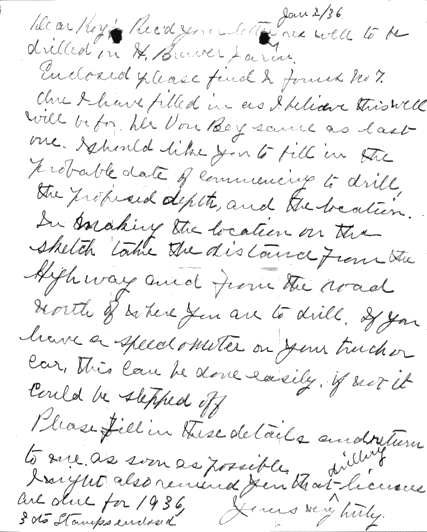 Jan 2/36.
Dear Roy: Rec'd your letter re well to be
drilled on H. Farm.
Enclosed please find 2 forms No 7.
One I have filled in as I believe this well
will be for Von Bey same as last
one. I should like you to fill in the
probable date of commencing to drill,
the proposed depth, and the location.
In making the location on the
sketch take the distance from the
Highway and from the road
north of where you are to drill. If you
have a speedometer on your truck or
car, this can be done easily, if not it
could be stepped off
Please fill in these details and return
to me as soon as possible.
I might also remind you that drilling licenses
are due for 1936.
Yours very truly.
3 cts Stamps enclosed